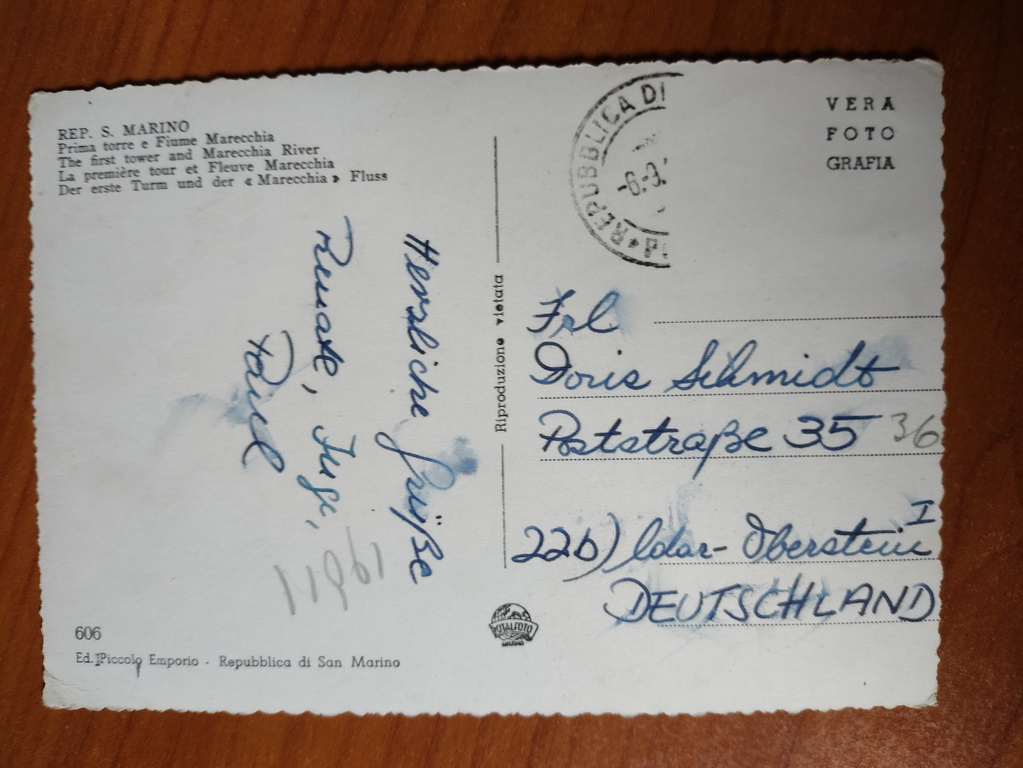 REP. S. MARINO
Prima torre e Fiume Marecchia
The first tower and Marecchia River
La première tour et Fleuve Marecchia
Der erste Turm und der « Marecchia » Fluss
Herzliche Grüße
Renate,
Paul
606
Ed. Piccolo Emporio - Repubblica di San Marino
Riproduzione vietata
REPUBBLICA DI
-8-9.
VERA
FOTO
GRAFIA
Frl
Doris Schmidt
Poststraße 35 36
22b) Idar-Oberstein I
DEUTSCHLAND